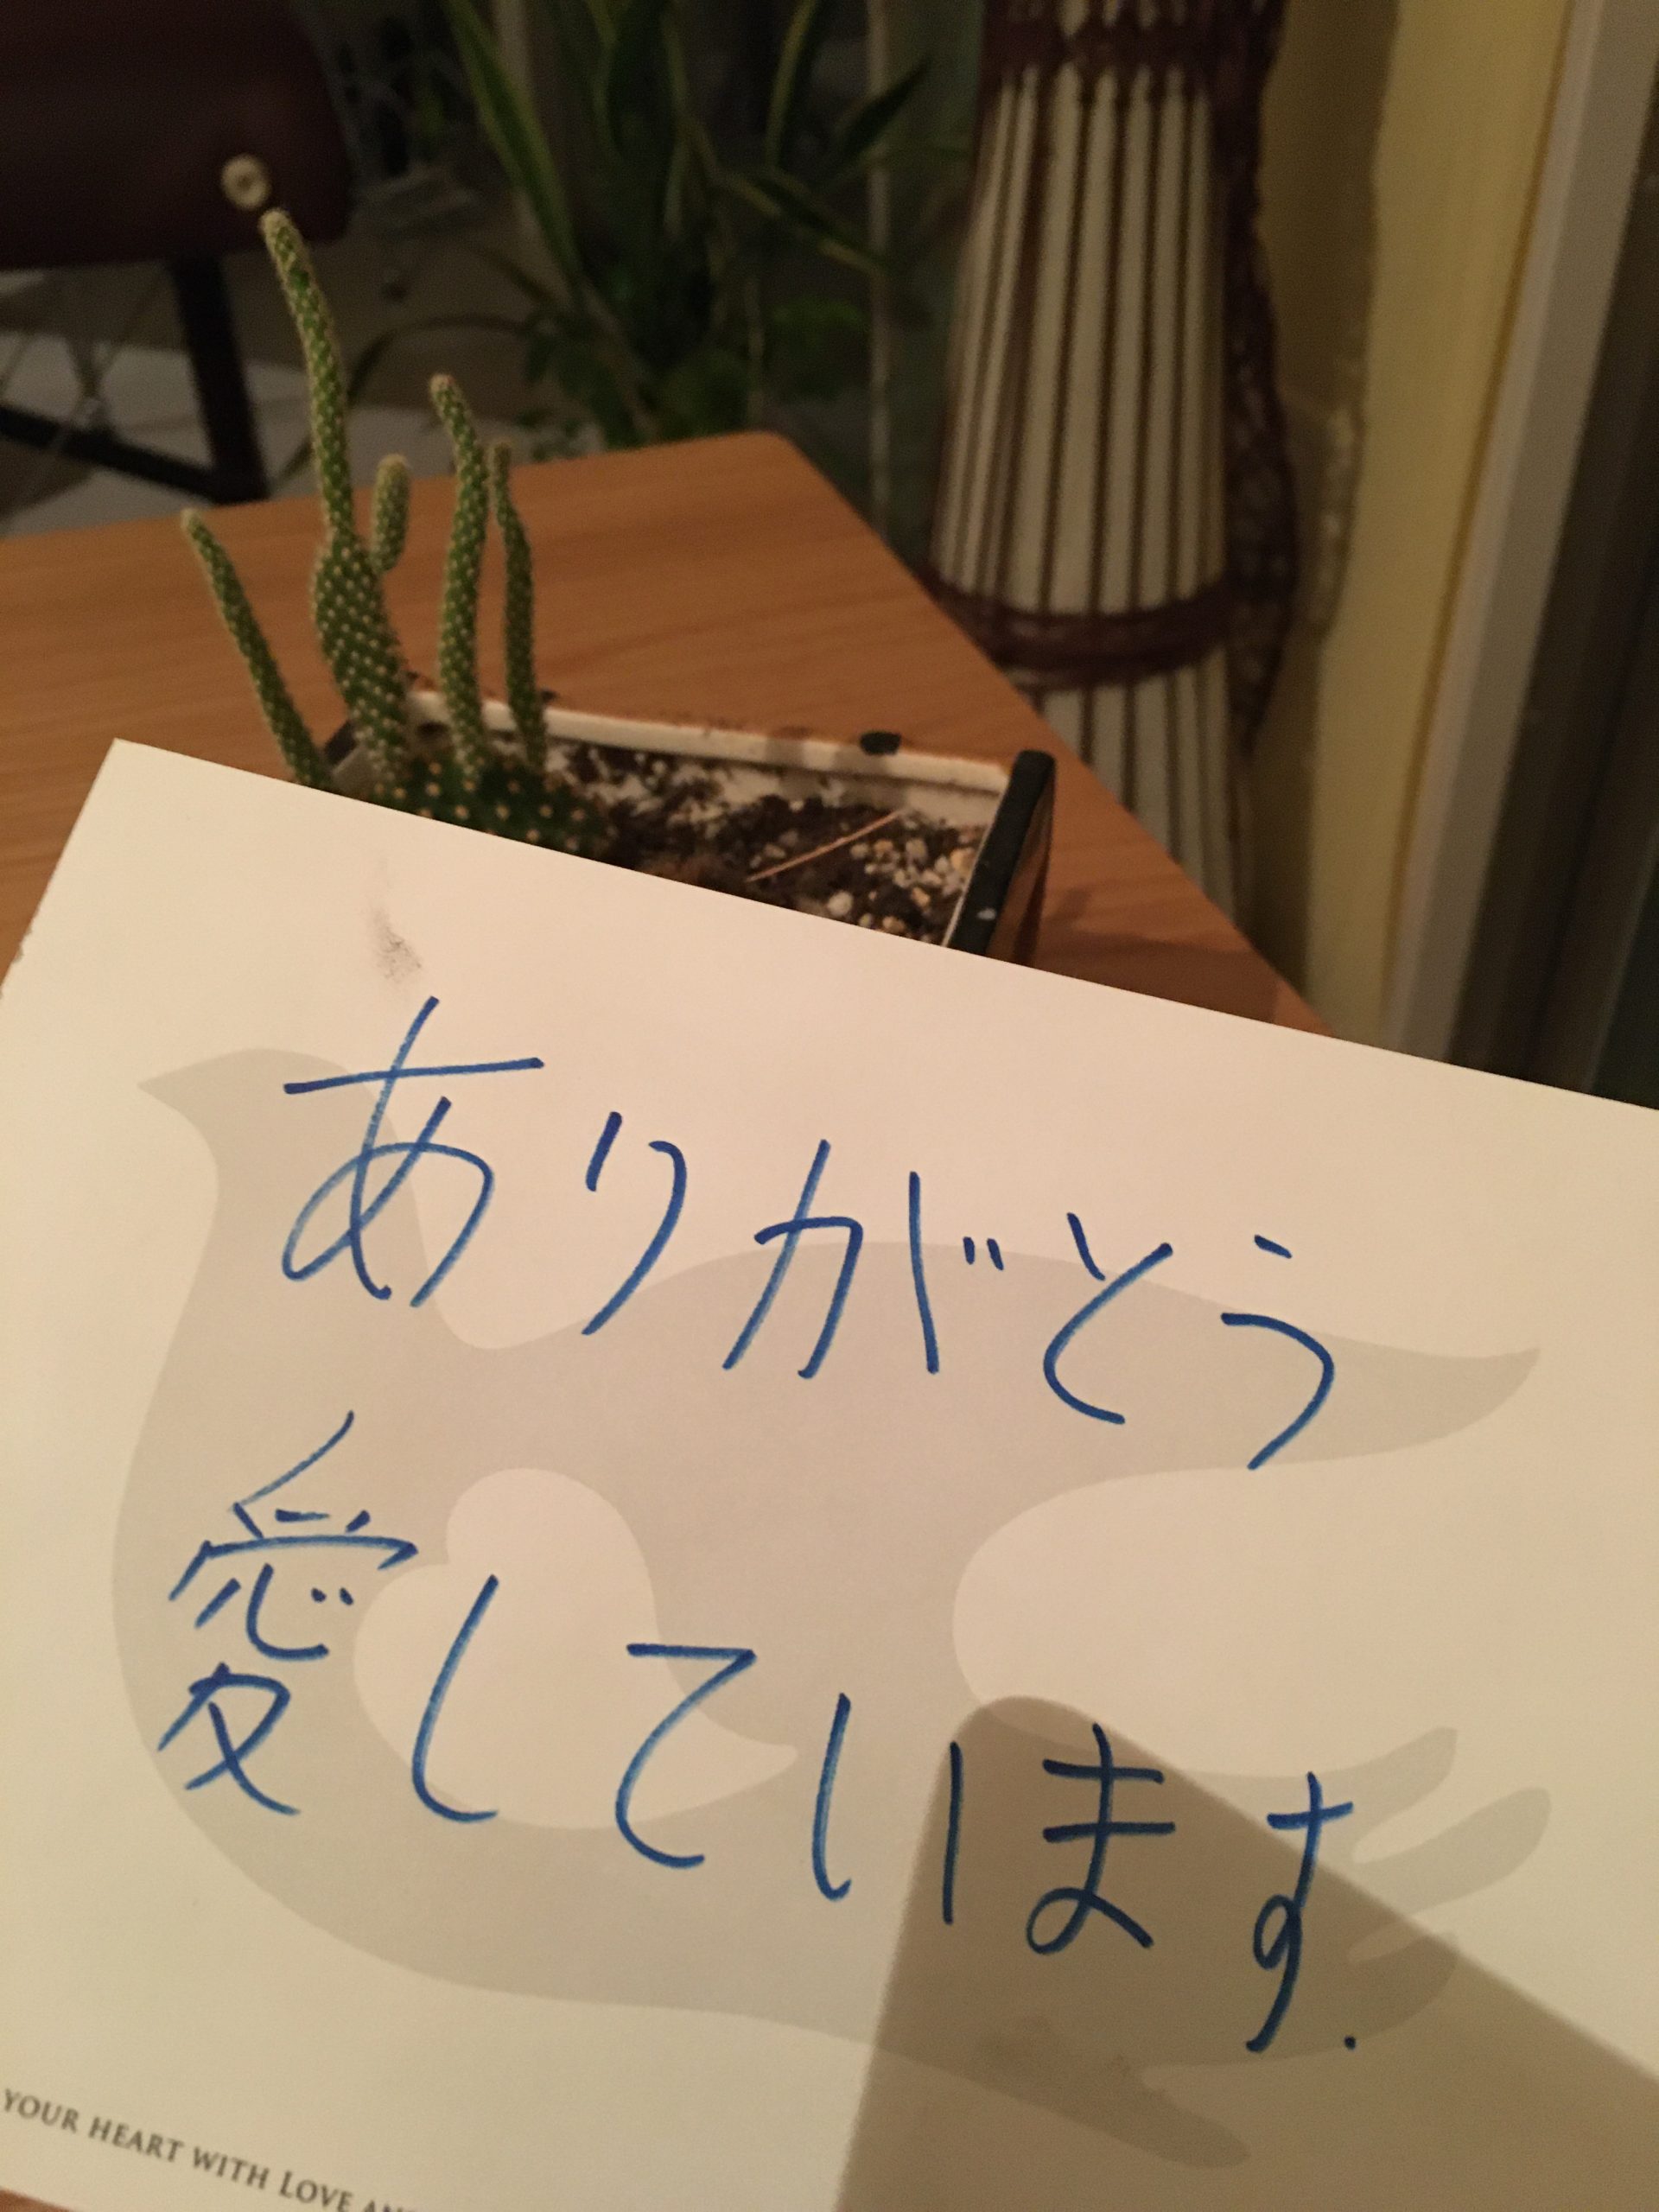 ありがとう
愛しています.
YOUR HEART WITH LOVE AN